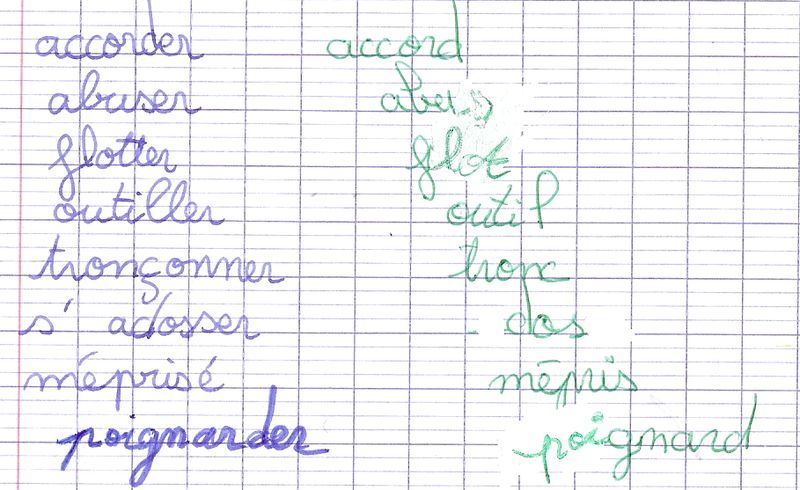 accorder accord
abuser abus
flotter flot
outiller outil
tronçonner tronc
s'adosser dos
méprisé mépris
poignarder poignard